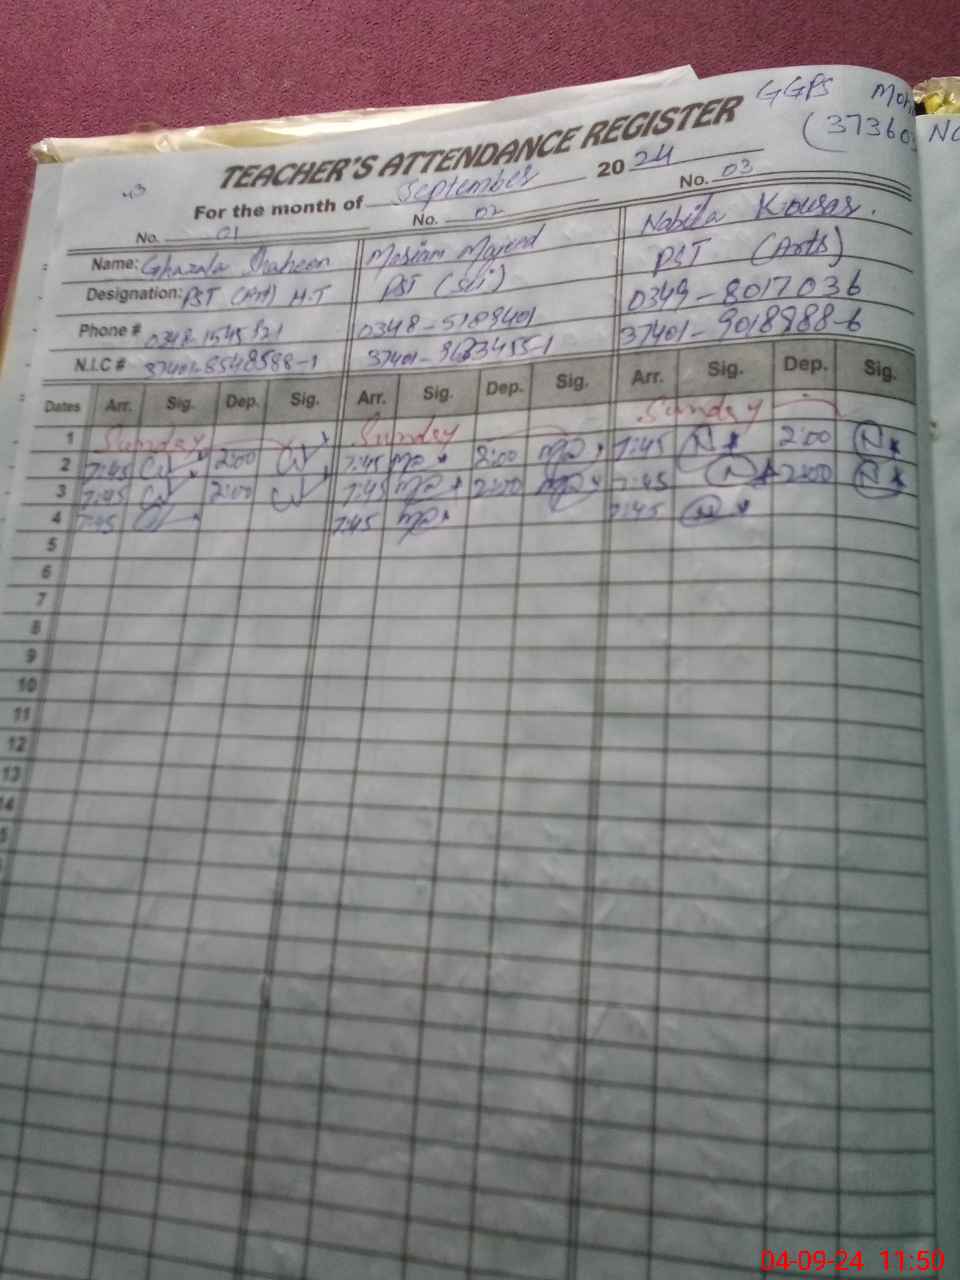 GGPS
(37360
TEACHER'S ATTENDANCE REGISTER
For the month of September 2024
No. 01 No. 02 No. 03
Name: Ghazala Shaheen Mariam Majeed Nabila Kousar.
Designation: PST (Art) H.T PST (Sci) PST (Arts)
Phone # 0348-5189401 0349-8017036
N.I.C # 37401-8548588-1 37401-9018988-6
Dates Arr. Sig. Dep. Sig. Arr. Sig. Dep. Sig. Arr. Sig. Dep. Sig.
1 Sunday Sunday Sunday
2 7:45 2:00 7:45 2:00 7:45 N 2:00 N
3 7:45 2:00 7:45 2:00 7:45 N 2:00 N
4 7:45 7:45 7:45 N
5
6
7
8
9
10
11
12
13
14
04-09-24 11:50